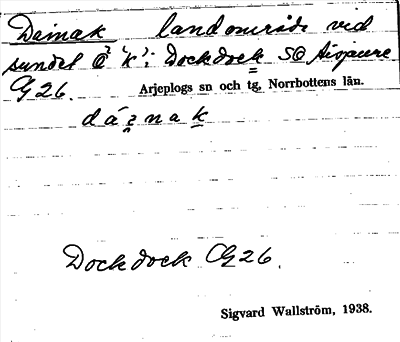 Dainak landområde vid
sundet "k": Dockdock SO Aisjaure
G 26. Arjeplogs sn och tg, Norrbottens län.
Dockdock G 26.
Sigvard Wallström, 1938.